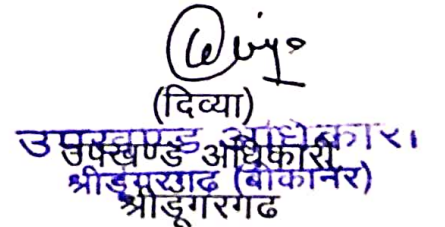 (दिव्या)
उपखण्ड अधिकारी
उपखण्ड अधिकारी
श्रीडूंगरगढ (बीकानेर)
श्रीडूँगरगढ